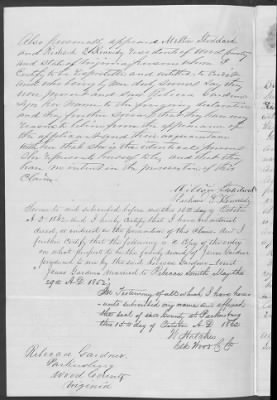 Also personally appeared Milton Stoddard
and Richard L Kennedy residents of Wood County
and State of Virginia persons whom I
Certify to be reputable and entitled to credit
and who being by me duly sworn say they
were present and saw Rebecca Gardner
sign her name to the foregoing declaration
and they further swear that they have every
reason to believe from the appearance of
the applicant and their acquaintance
with her that she is the identical person
she represents herself to be, and that they
have no interest in the prosecution of this
Claim.
Milton Stoddard
Richard L Kennedy
Sworn to and subscribed before me this 15th day of October
A D 1862 And I hereby Certify that I have no interest
direct or indirect in the prosecution of this Claim. And I
further Certify that the following is a Copy of the entry
on what purports to be the family record of Jesse Gardner
produced to me by the said Rebecca Gardner to wit
Jesse Gardner married to Rebecca Smith May the
29th A.D. 1852
In Testimony of all which I have here-
unto subscribed my name and affixed
the seal of said County at Parkersburg
this 15th day of October A.D. 1862
W Hatcher
Clk Wood Co Ct
Rebecca Gardner
Parkersburg
Wood County
Virginia